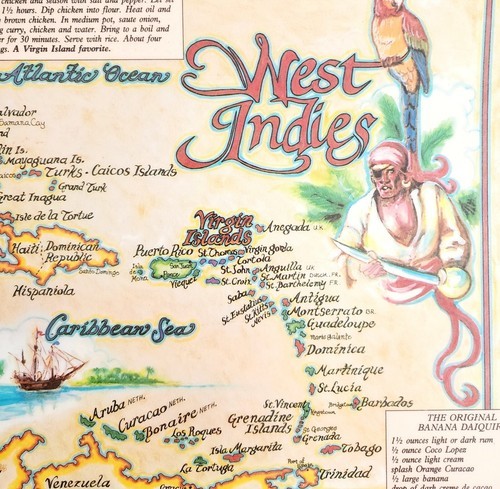 chicken and season with salt and pepper. Let set
1½ hours. Dip chicken into flour. Heat oil and
brown chicken. In medium pot, saute onion,
curry, chicken and water. Bring to a boil and
er for 30 minutes. Serve with rice. About four
gs. A Virgin Island favorite.
Atlantic Ocean
West
Indies
alvador
Samana Cay
Mayaguana Is.
Turks - Caicos Islands
Grand Turk
Great Inagua
Isle de la Tortue
Haiti
Dominican
Republic
Santo Domingo
Hispaniola
Virgin
Islands
Anegada U.K
Puerto Rico
St. Thomas
Virgin Gorda
Tortola
San Juan
Ponce
Isle de
Mona
Vieques
St. John
Anguilla U.K
St. Croix
St. Martin DUTCH, FR.
St. Barthelemy FR.
Saba
St. Eustatius
St. Kitts
Nevis
Antigua
Montserrat BR.
Guadeloupe
Marie Galante
Dominica
Caribbean Sea
Martinique
St. Lucia
St. Vincent
Bridgetown
Barbados
Aruba NETH.
Curacao NETH.
Bonaire NETH.
Grenadine
Islands
Kingstown
St Georges
Grenada
Los Roques
Isla Margarita
Tobago
La Tortuga
Port of
Trinidad
Venezuela
Caracas
THE ORIGINAL
BANANA DAIQUIR
1½ ounces light or dark rum
½ ounce Coco Lopez
½ ounce light cream
splash Orange Curacao
½ large banana
drop of dark creme de cacao